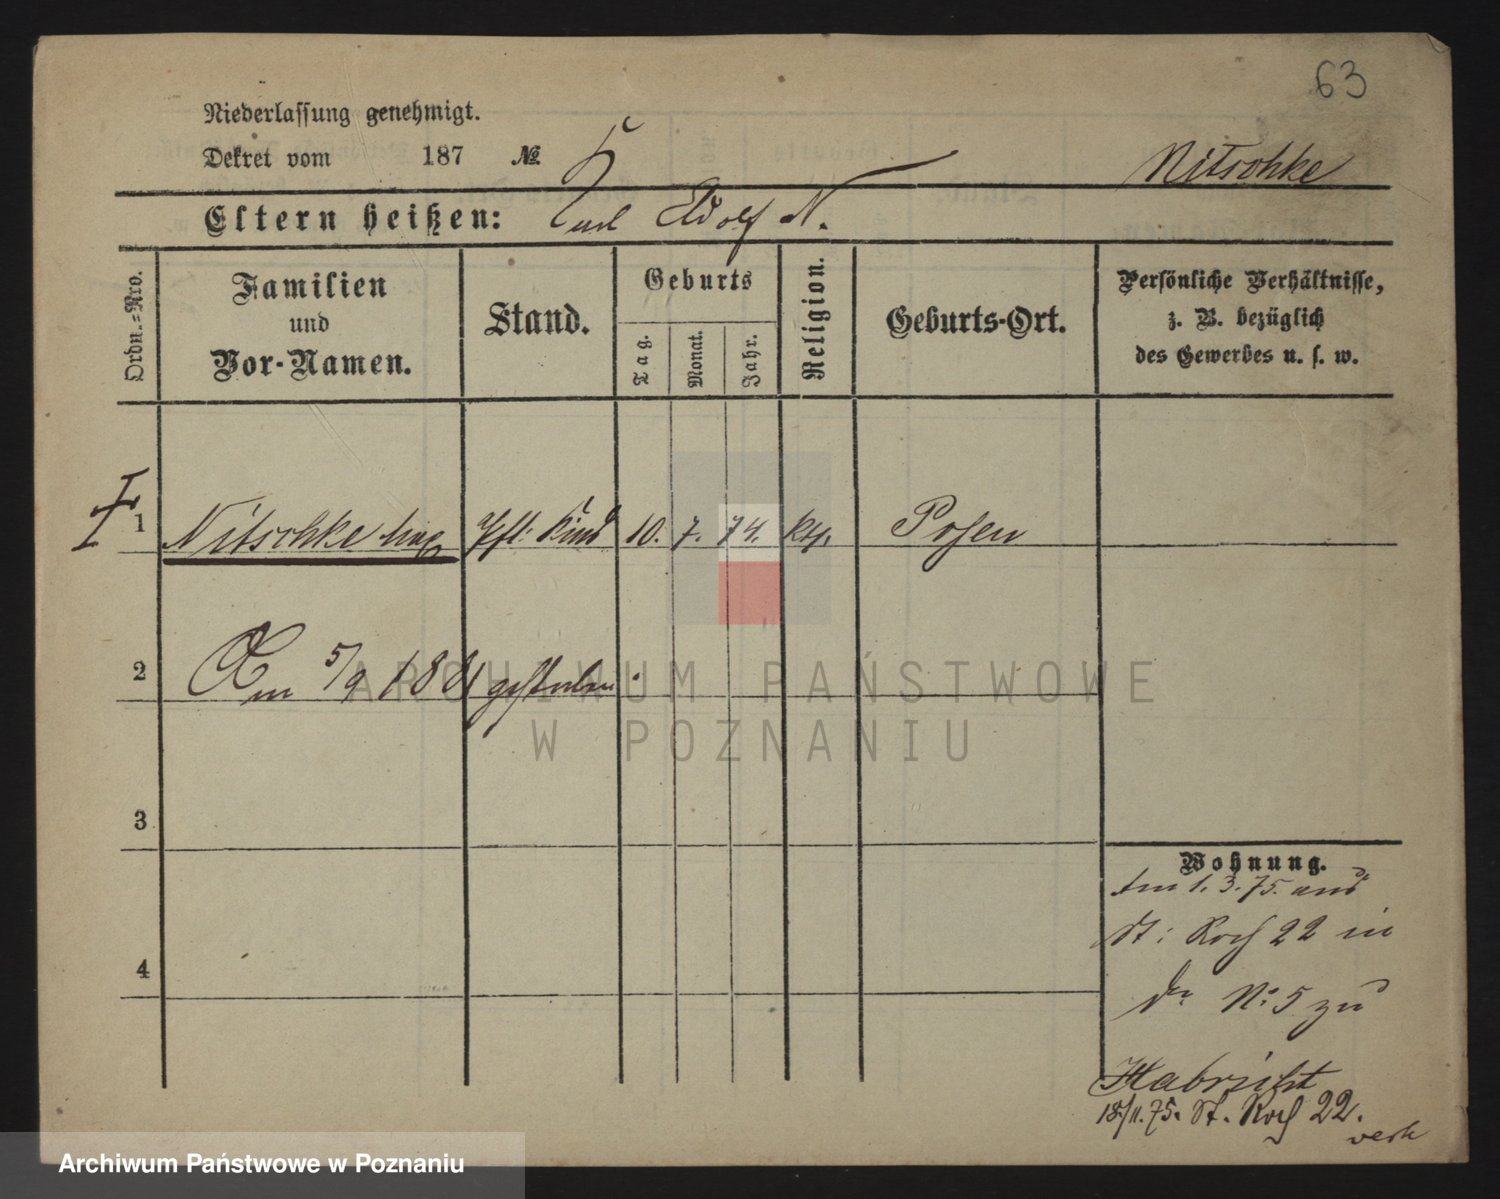 63
Niederlassung genehmigt.
Dekret vom 187 №
Nitschke
Eltern heißen: Adolf N.
Ordn.-Nro.
Familien
und
Vor-Namen.
Stand.
Geburts
Tag.
Monat.
Jahr.
Religion.
Geburts-Ort.
Persönliche Verhältnisse,
z. B. bezüglich
des Gewerbes u. s. w.
1 Nitschke Kind 10. 7. 74. kth. Posen
2 Am 5/9 1881 gestorben.
3
4
Wohnung.
Am 1. 3. 75. aus
St: Roch 22 in
No 5 zu
Habricht
18/11.75. St. Roch 22.
ARCHIWUM PAŃSTWOWE
W POZNANIU
Archiwum Państwowe w Poznaniu